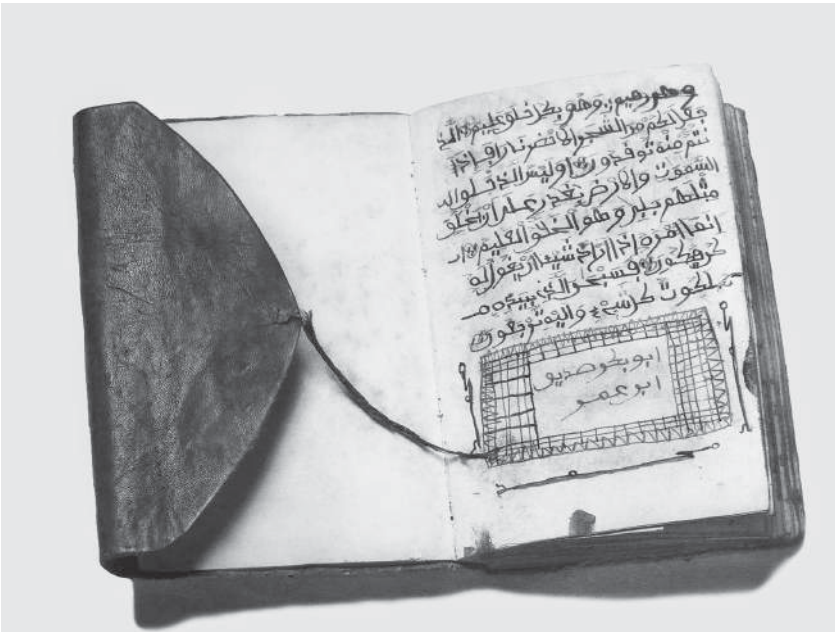 وهى رميم وهو بكل خلق عليم الذ
جعل لكم من الشجر الاخضر نارا فاذا
انتم منه توقدون اوليس الذ خلق
السموت والارض بقدر على ان يخلق
مثلهم بلى وهو الخلق العليم
انما امره اذا اراد شيئا ان يقول له
كن فيكون فسبحن الذ بيده
ملكوت كل شيء واليه ترجعون
ابو بكر صديق
ابو عمر